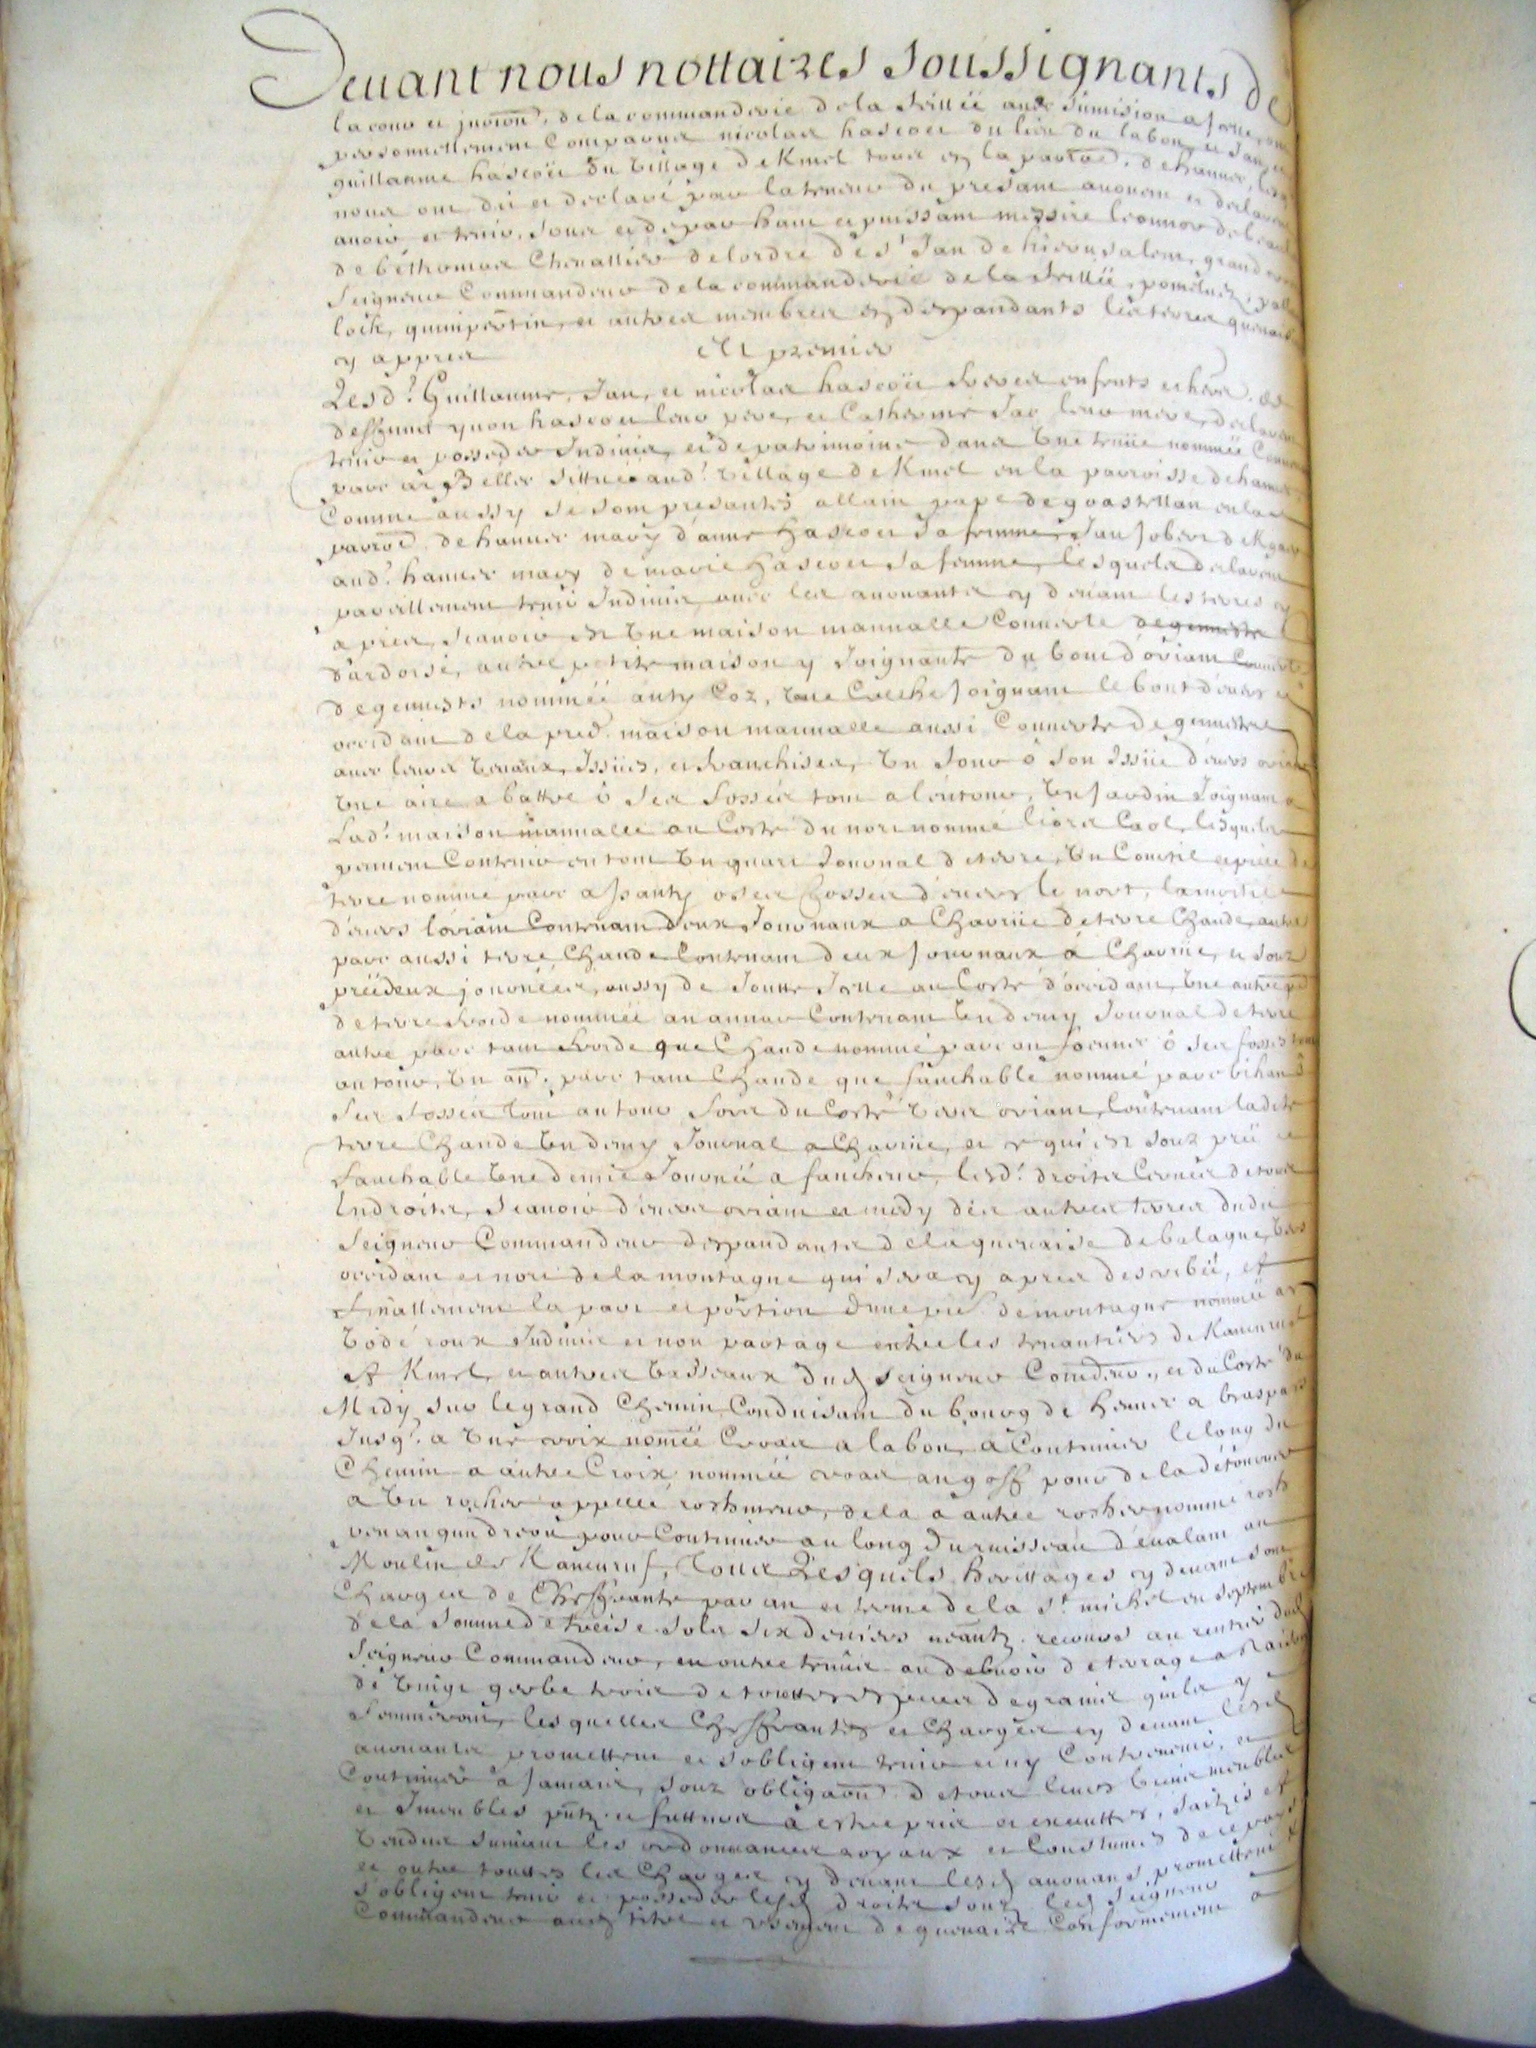 Devant nous nottaires soussignants de
la cour et jurion. de la commanderie de la feillée avec sumision a jcelle, ont
personnellement comparus nicolas hascoet du lieu du labou, et Jan, et
guillaume hascoët du village de Kmel tous en la parroë. de hanvec,
nous ont dit et declaré par la teneur du presant adveu et declaration
avoir et tenir, sous et de par haut et puissant messire leonnor de
de bethomas Chevallier de lordre de st Jan de hierusalem, grand
Seigneur Commandeur de la commanderie de la feillée, pomelvez,
loch, quimpertin, et autres membres en despandants les terres
cy appres Et premier
Lesd. Guillaume, Jan, et nicolas hascoët freres enfents et herr. de
deffunct yvon hascoet leur pere, et Catherine Jao leur mere, declarent
tenir et posseder Indivis, et de patrimoine dans une tenue nommée
parc ar Beller sittuée aud. village de Kmel en la parroisse de hanvec
Comme aussy se sont presantés allain pape de goastellan en la
parroë. de hanvec mary d'anne hascoet sa femme, Jan Jober de
aud. hanvec mary de marie hascoet sa femme, lesquels declarent
pareillement tenir Indivis avec les advouants cy devant les terres cy
apres, scavoir est une maison mannalle Couverte de gennestre
d'ardoise, autre petite maison y joignante du bout d'oriant couverte
de gennests nommée an ty Coz, une Creche joignant le bout devers
occidant de la pred. maison mannalle aussi Couverte de gennestre
avec leurs venaux, issues, et franchises, un four o son issue devers oriant
une aire a battre o ses fossés tout a lentour, un jardin joignant a
Lad. maison mannalle au Costé du nort nommé liors Caol, lesquels
peuvent Contenir en tout un quart Journal de terre, un Courtil et piece de
terre nommé parc a santy o ses fossés devers le nort, la moitié
devers loriant Contenant deux Journaux a Charrüe de terre Chaude, autre
parc aussi terre Chaude Contenant deux journaux a Charrüe, et souz
prée deux journées, aussy de Joutte icelle au Costé d'occidant, une autre
de terre froide nommée an annar Contenant un demy Journal de terre
autre parc tant froide que Chaude nommé parc an fornner o ses fossés tout
autour, un au. parc tant Chaude que fauchable nommé parc bihan o
ses fossés tout autour fors du Costé vers oriant, Contenant ladite
terre Chaude un demy Journal a Charrüe, et ce qui est souz prée et
fauchable une demie Journée a faucheur, lesd. droits cernés de tous
Endroits, scavoir devers oriant et midy des autres terres dudit
Seigneur Commandeur despandantes de la quevaise de balague, vers
occidant et nort de la montagne qui sera cy apres describée, et
finallement la part et portion d'une pie. de montagne nommée ar
vodé roux Indivis et non partagé entre les tenantiers de Kancuruf
et Kmel, et autres vasseaux dud. seigneur Comdeur., et du Costé du
Midy sur le grand Chemin Conduisant du bourg de hanvec a braspars
Jusq. a une croix nomée Croas a labou, a Continuer le long du
Chemin a autre Croix nommée croas an goff pour de la detourner
a un rocher appellé rochmeur, de la a autre rocher nommé roch
penanguindreon pour Continuer au long du ruisseau devalant au
Moulin de Kancuruf, Tous Lesquels herittages cy devant sont
Chargés de Cheffrante par an et terme de la st. michel en septembre
de la somme de treise sols six deniers néantz. recours au rentier dud.
Seigneur Commandeur, en outre tenüs au debvoir de terrage a Raison
de vingt gerbe trois de touttes especes de grains quils y
semmeront, lesquelles Cheffrantes et Charges cy devant lesd.
advouants promettent et sobligent tenir et ny Contrevenir, et
Continuer a Jamais, souz obligaon. de tous leurs biens meubles
et Jmeubles pntz. et futturs a estre pris et executtes, saisis et
vendus suivant les ordonnances royaux et Coustumes de ce pays
et outre touttes les Charges cy devant lesd. advouans promettent
s'obligent tenir et posseder lesd. droits souz led. seigneur
Commandeur aud. titre et usement de quevaize Conformement a